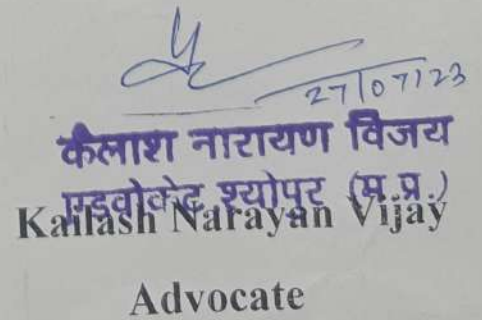 27/07/23
कैलाश नारायण विजय
एडवोकेट श्योपुर (म.प्र.)
Kailash Narayan Vijay
Advocate